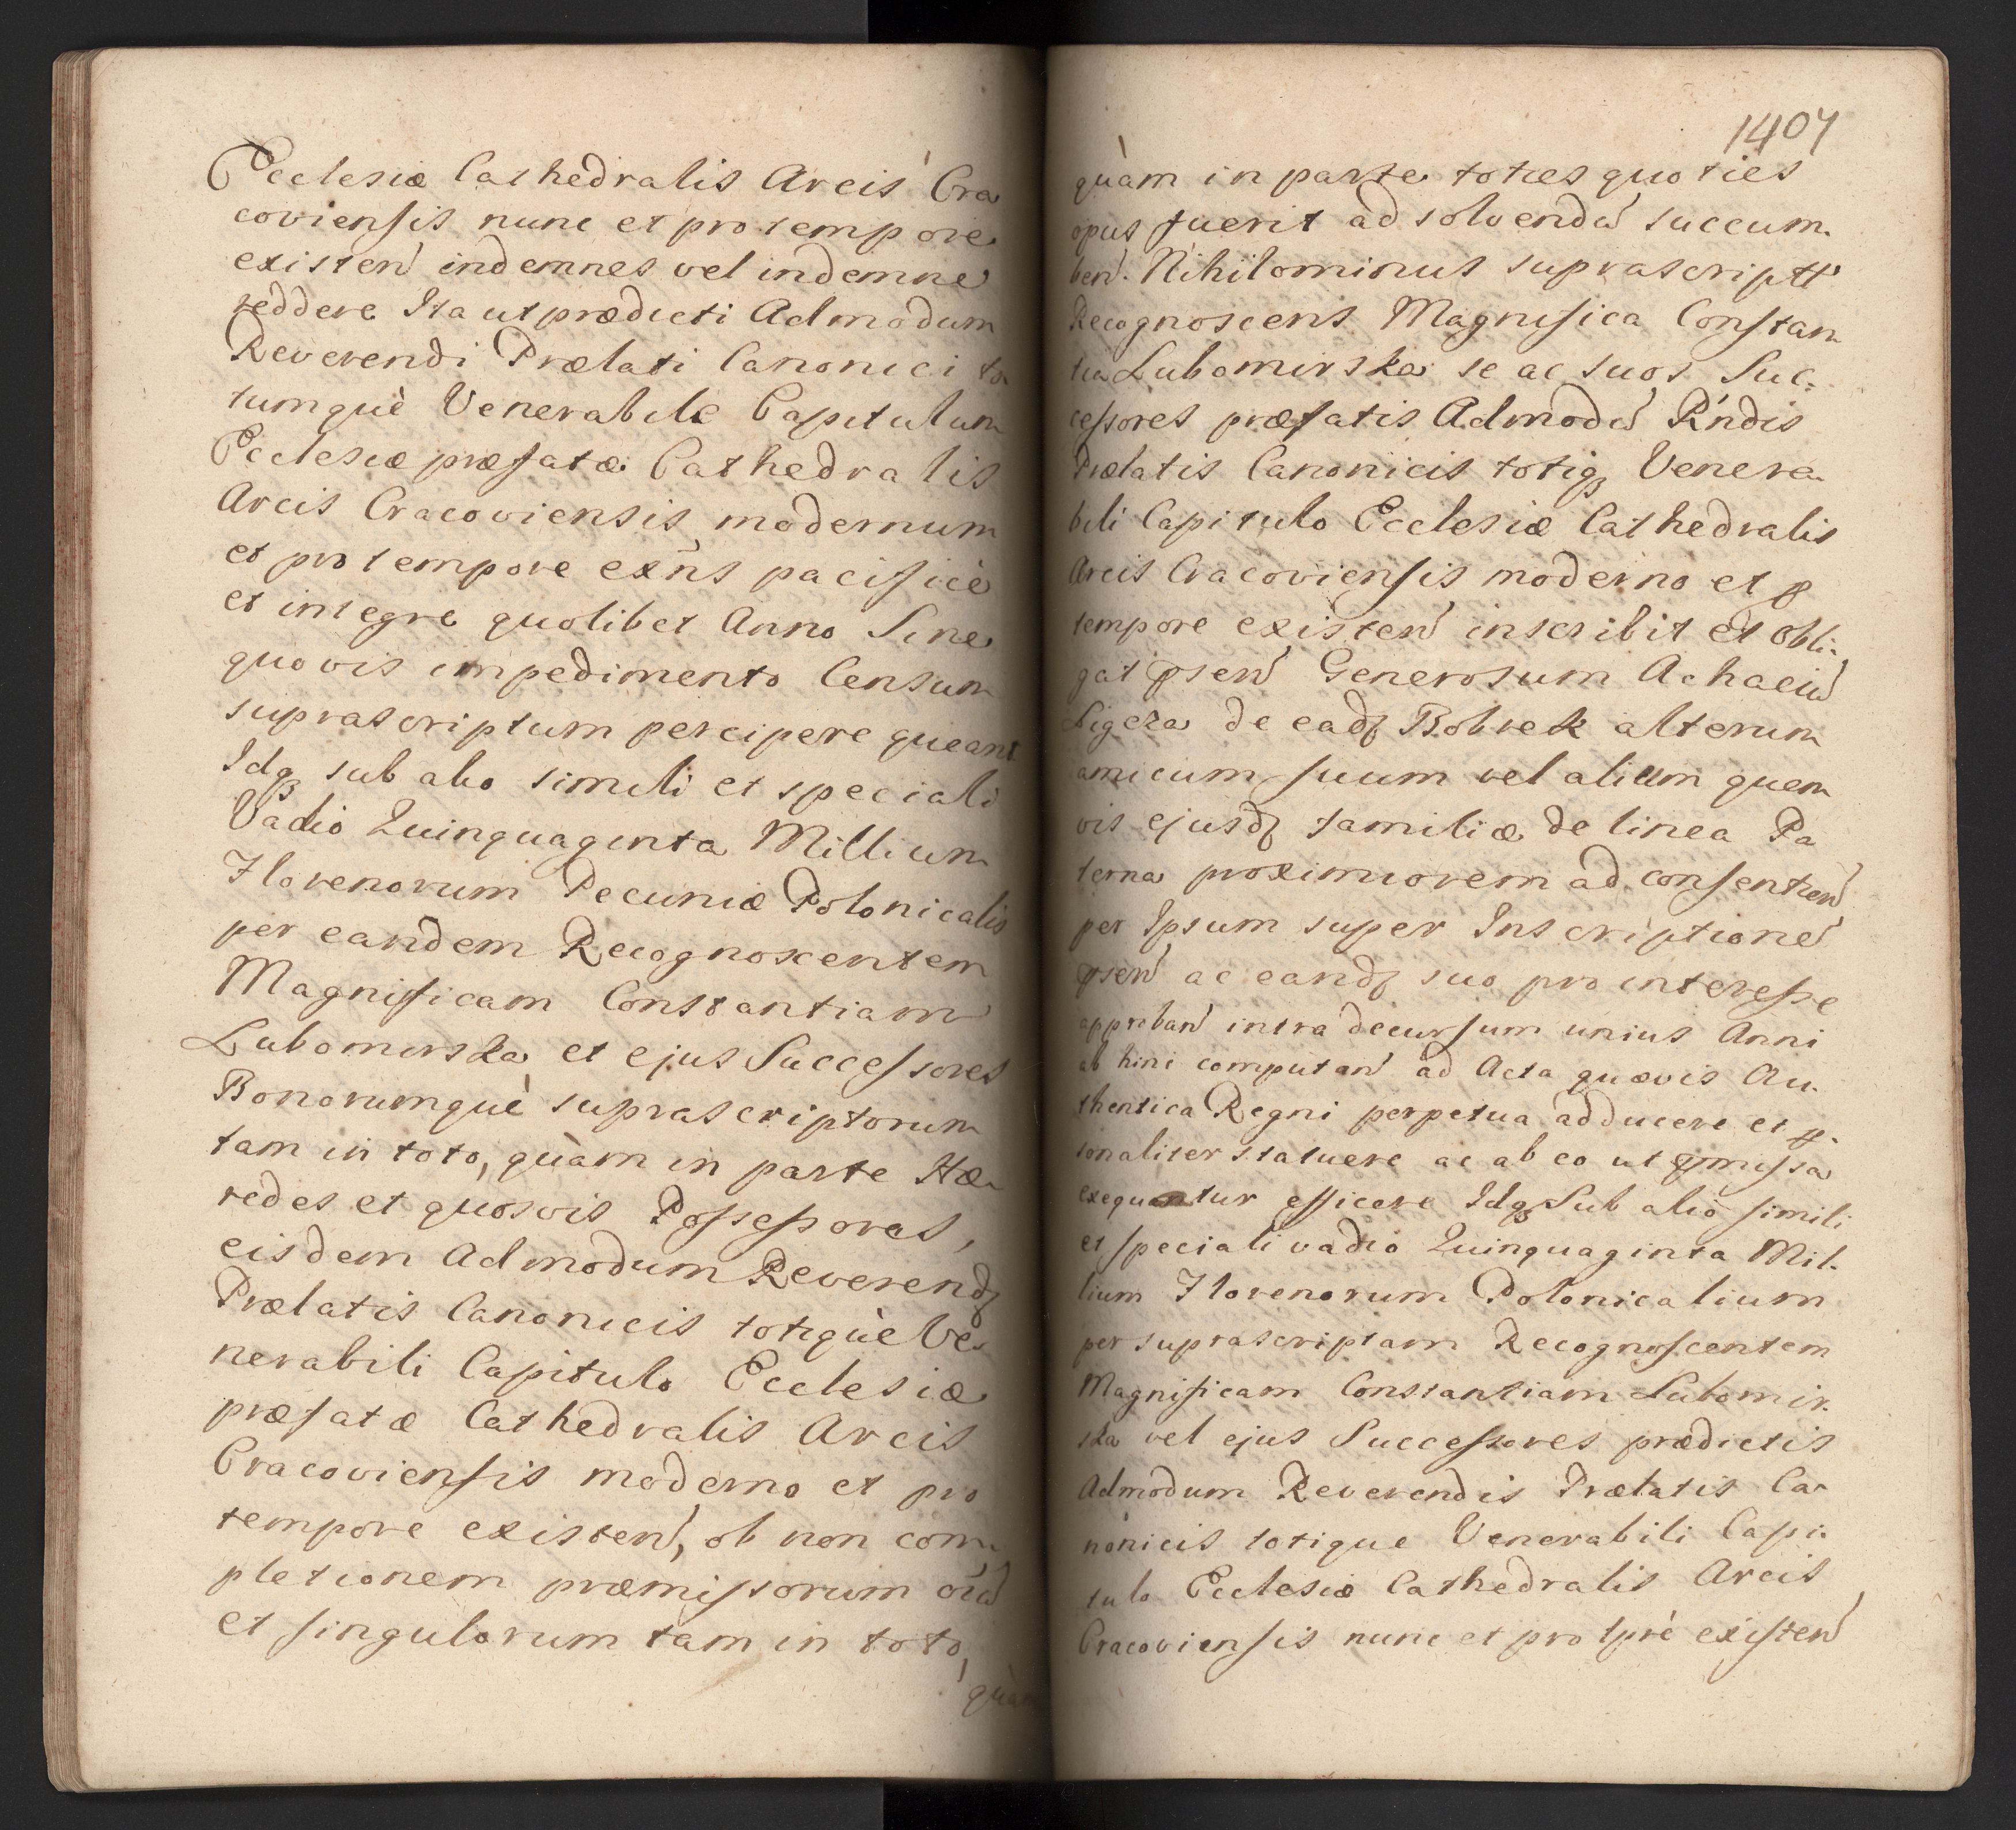 Ecclesiæ Cathedralis Arcis Cra
coviensis nunc et pro tempore
existen̄ indemnes vel indemne
reddere Ita ut prædicti Admodum
Reverendi Prælati Canonici to
tumquè Venerabile Capitulum
Ecclesiæ præfatæ Cathedralis
Arcis Cracoviensis modernum
et pro tempore exn̄s pacificè
et integre quolibet Anno Sine
quovis impedimento Censum
suprascriptum percipere queant
Idq3 sub alio simili et speciali
Vadio Quinquaginta Millium
Florenorum Pecuniæ Polonicalis
per eandem Recognoscentem
Magnificam Constantiam
Lubomirska et ejus Successores
Bonorumquè suprascriptorum
tam in toto, quàm in parte Hæ-
redes et quosvis Possessores,
eisdem Admodum Reverend
Prælatis Canonicis totiquè Ve-
nerabili Capitulo Ecclesiæ
præfatæ Cathedralis Arcis
Cracoviensis moderno et pro
tempore existen̄, ob non com-
pletionem præmissorum oīu
et singulorum tam in toto,
quàm
1407
quàm in parte toties quoties
opus fuerit ad solvendū succum-
ben̄. Nihilominus suprascriptt
Recognoscens Magnifica Constan
tia Lubomirska se ac suos Suc=
cessores præfatis Admodū Rn̄dis
Prælatis Canonicis totiq3 Venera-
bili Capitulo Ecclesiæ Cathedralis
Arcis Cracoviensis moderno et p
tempore existen̄ inscribit et obli-
gat p̄sen̄ Generosum Achaciū
Ligeza de ead Bobrek alterum
amicum suum vel alium quem
vis ejusd familiæ de linea Pa
terna proximiorem ad consentien̄
per Ipsum super Inscriptione
p̄sen̄ ac eand suo pro interesse
approban̄ intra decursum unius Anni
ab hinc computan̄ ad Acta quævis Au-
thentica Regni perpetua adducere et p-
sonaliter statuere ac ab eo ut p̄missa
exequantur efficere Idq3 Sub alio simili
et speciali vadio Quinquaginta Mil-
lium Florenorum Polonicalium
per suprascriptam Recognoscentem
Magnificam Constantiam Lubomir-
ska vel ejus Successores prædictis
Admodum Reverendis Prælatis Ca-
nonicis totique Venerabili Capi-
tulo Ecclesiæ Cathedralis Arcis
Cracoviensis nunc et pro tprè existen̄